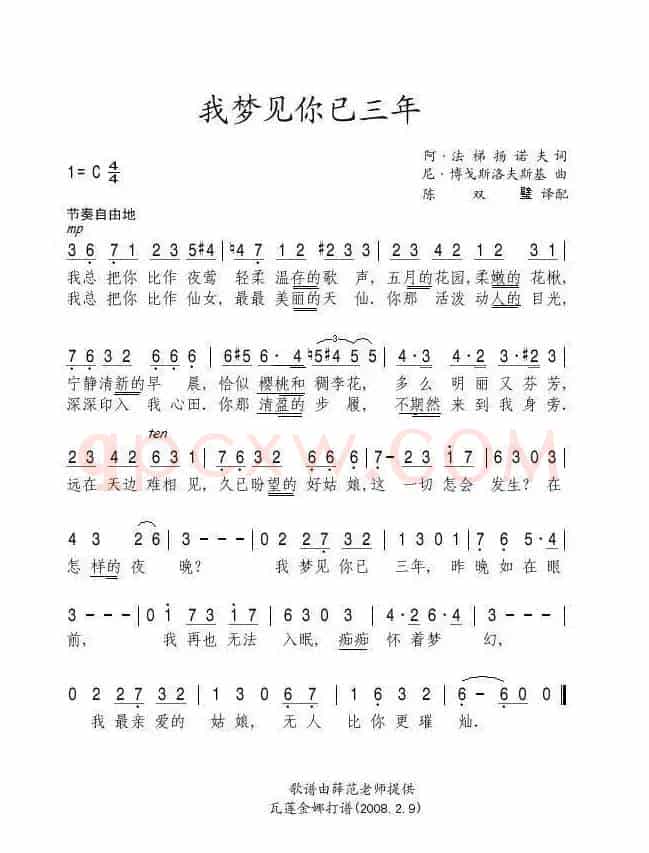 我梦见你已三年
阿·法梯扬诺夫词
1=C 4/4
尼·博戈斯洛夫斯基 曲
陈双璧译配
节奏自由地
mp
3 6 7 1 2 3 5 #4 | ♮4 7 1 2 #2 3 3 | 2 2 1 2 3 1 |
我总把你比作夜莺轻柔温存的歌声,五月的花园,柔嫩的花楸,
我总把你比作仙女,最最美丽的天仙.你那活泼动人的目光,
7 6 3 2 6 6 6 | 6 #5 6· 4 ♮5 #4 5 5 | 4 — 2 4 6 5 |
宁静清新的早晨,恰似樱桃和稠李花,多么明丽又芬芳,
深深印入我心田.你那清盈的步履,不期然来到我身旁.
ten
2 3 4 2 6 3 1 | 7 6 3 2 6 6 6 | 7 - 2 3 1 7 | 6 3 0 3 |
远在天边难相见,久已盼望的好姑娘,这一切怎会发生?在
4 3 2 6 | 3 - - - | 0 2 2 7 3 2 | 1 3 0 1 | 7 6 5· 4 |
怎样的夜晚?我梦见你已三年,昨晚如在眼
3 - - - | 0 1 7 3 1 7 | 4· 2 4 2 6· 4 | 3 - - - |
前,我再也无法入眠,痴痴怀着梦幻,
0 2 2 7 3 2 | 1 3 0 6 7 | 1 2 3 1 | 6 - 6 0 0 ‖
我最亲爱的姑娘,无人比你更璀灿.
歌谱由薛范老师提供
瓦莲金娜打谱(2008.2.9)
qpcxw.COM